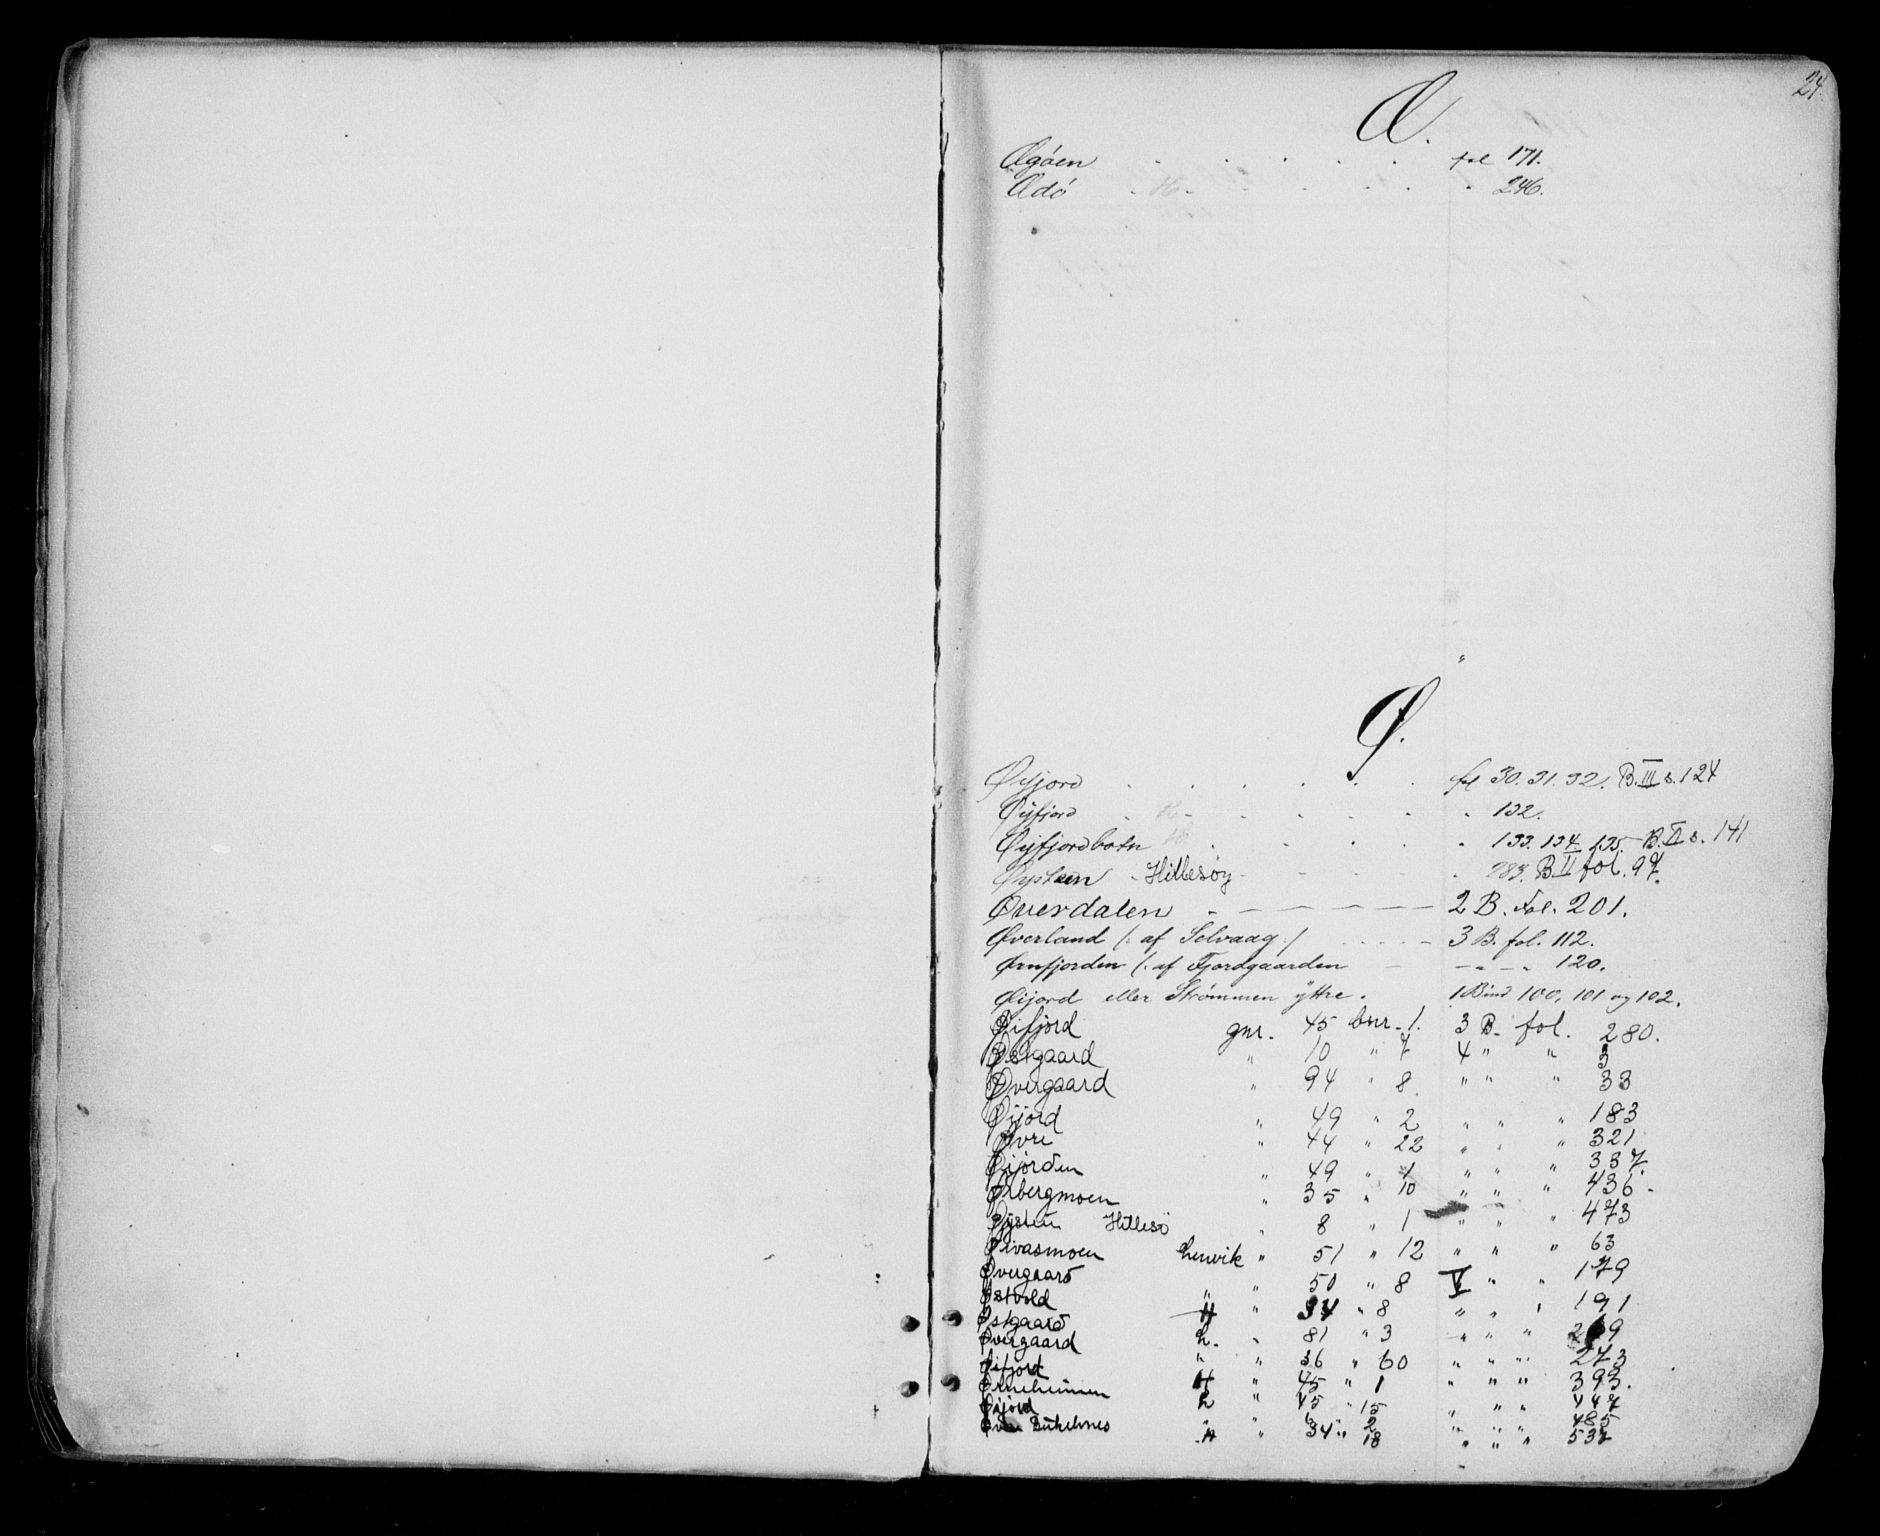 24.
Æ.
Ægøen . . . . . fol 171.
Ædö . H. . . . . " 246.
Ø.
Øifjord . . . . . fol 30. 31. 32. B. III s. 124
Øifjord . H. . . . . " 132.
Øifjordbotn H . . . . " 133. 134. 135. B. II s. 141
Øystein - Hillesöy - - - - " 283. B II fol. 97.
Øverdalen - - - - - 2 B. Fol. 201.
Øverland /: af Selvaag :/ - - - - 3 B. fol. 112.
Ørnfjorden /: af Fjordgaarden - - " - " 120.
Øijord eller Strømmen ytre. 1 Bind 100, 101 og 102.
Øifjord gnr. 45 bnr. 1. 3 B. fol. 280.
Østgaard " 10 " 7 4 " " 3
Øvergaard " 94 " 8. " " " 33
Øijord " 49 " 2 " " " 183
Øvre " 44 " 22 " " " 321
Øijorden " 49 " 1 " " " 337.
Ørbergmoen " 35 " 10 " " " 436.
Øjstein Hillesö " 8 " 1 " " " 473
Lenvik " 51 " 12 " " " 63
Øvergaard " " 50 " 8 V " " 179
Østvold H " 34 " 8 " " " 191
Østgaard L. " 81 " 3 " " "
Øvergaard " " 36 " 60 " " " 273
Øifjord H " 45 " 1 " " " 393.
L " 45 " 15 " " " 447
Øijord " " 2 " " " 485
H " 34 " 18 " " " 537